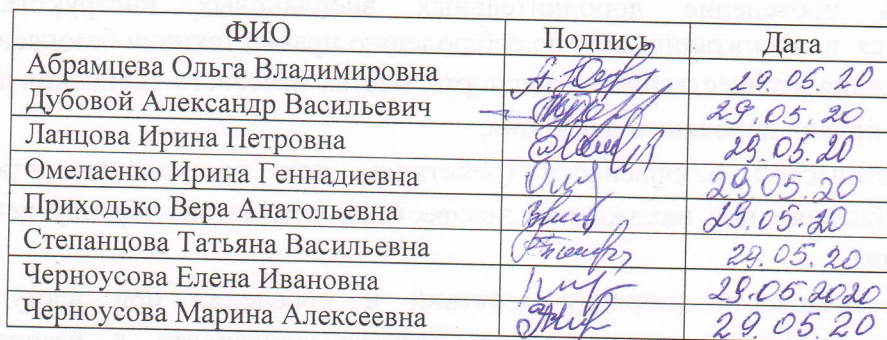 ФИО Подпись Дата
Абрамцева Ольга Владимировна 29.05.20
Дубовой Александр Васильевич 29.05.20
Ланцова Ирина Петровна 29.05.20
Омелаенко Ирина Геннадиевна 29.05.20
Приходько Вера Анатольевна 29.05.20
Степанцова Татьяна Васильевна 29.05.20
Черноусова Елена Ивановна 29.05.2020
Черноусова Марина Алексеевна 29.05.20